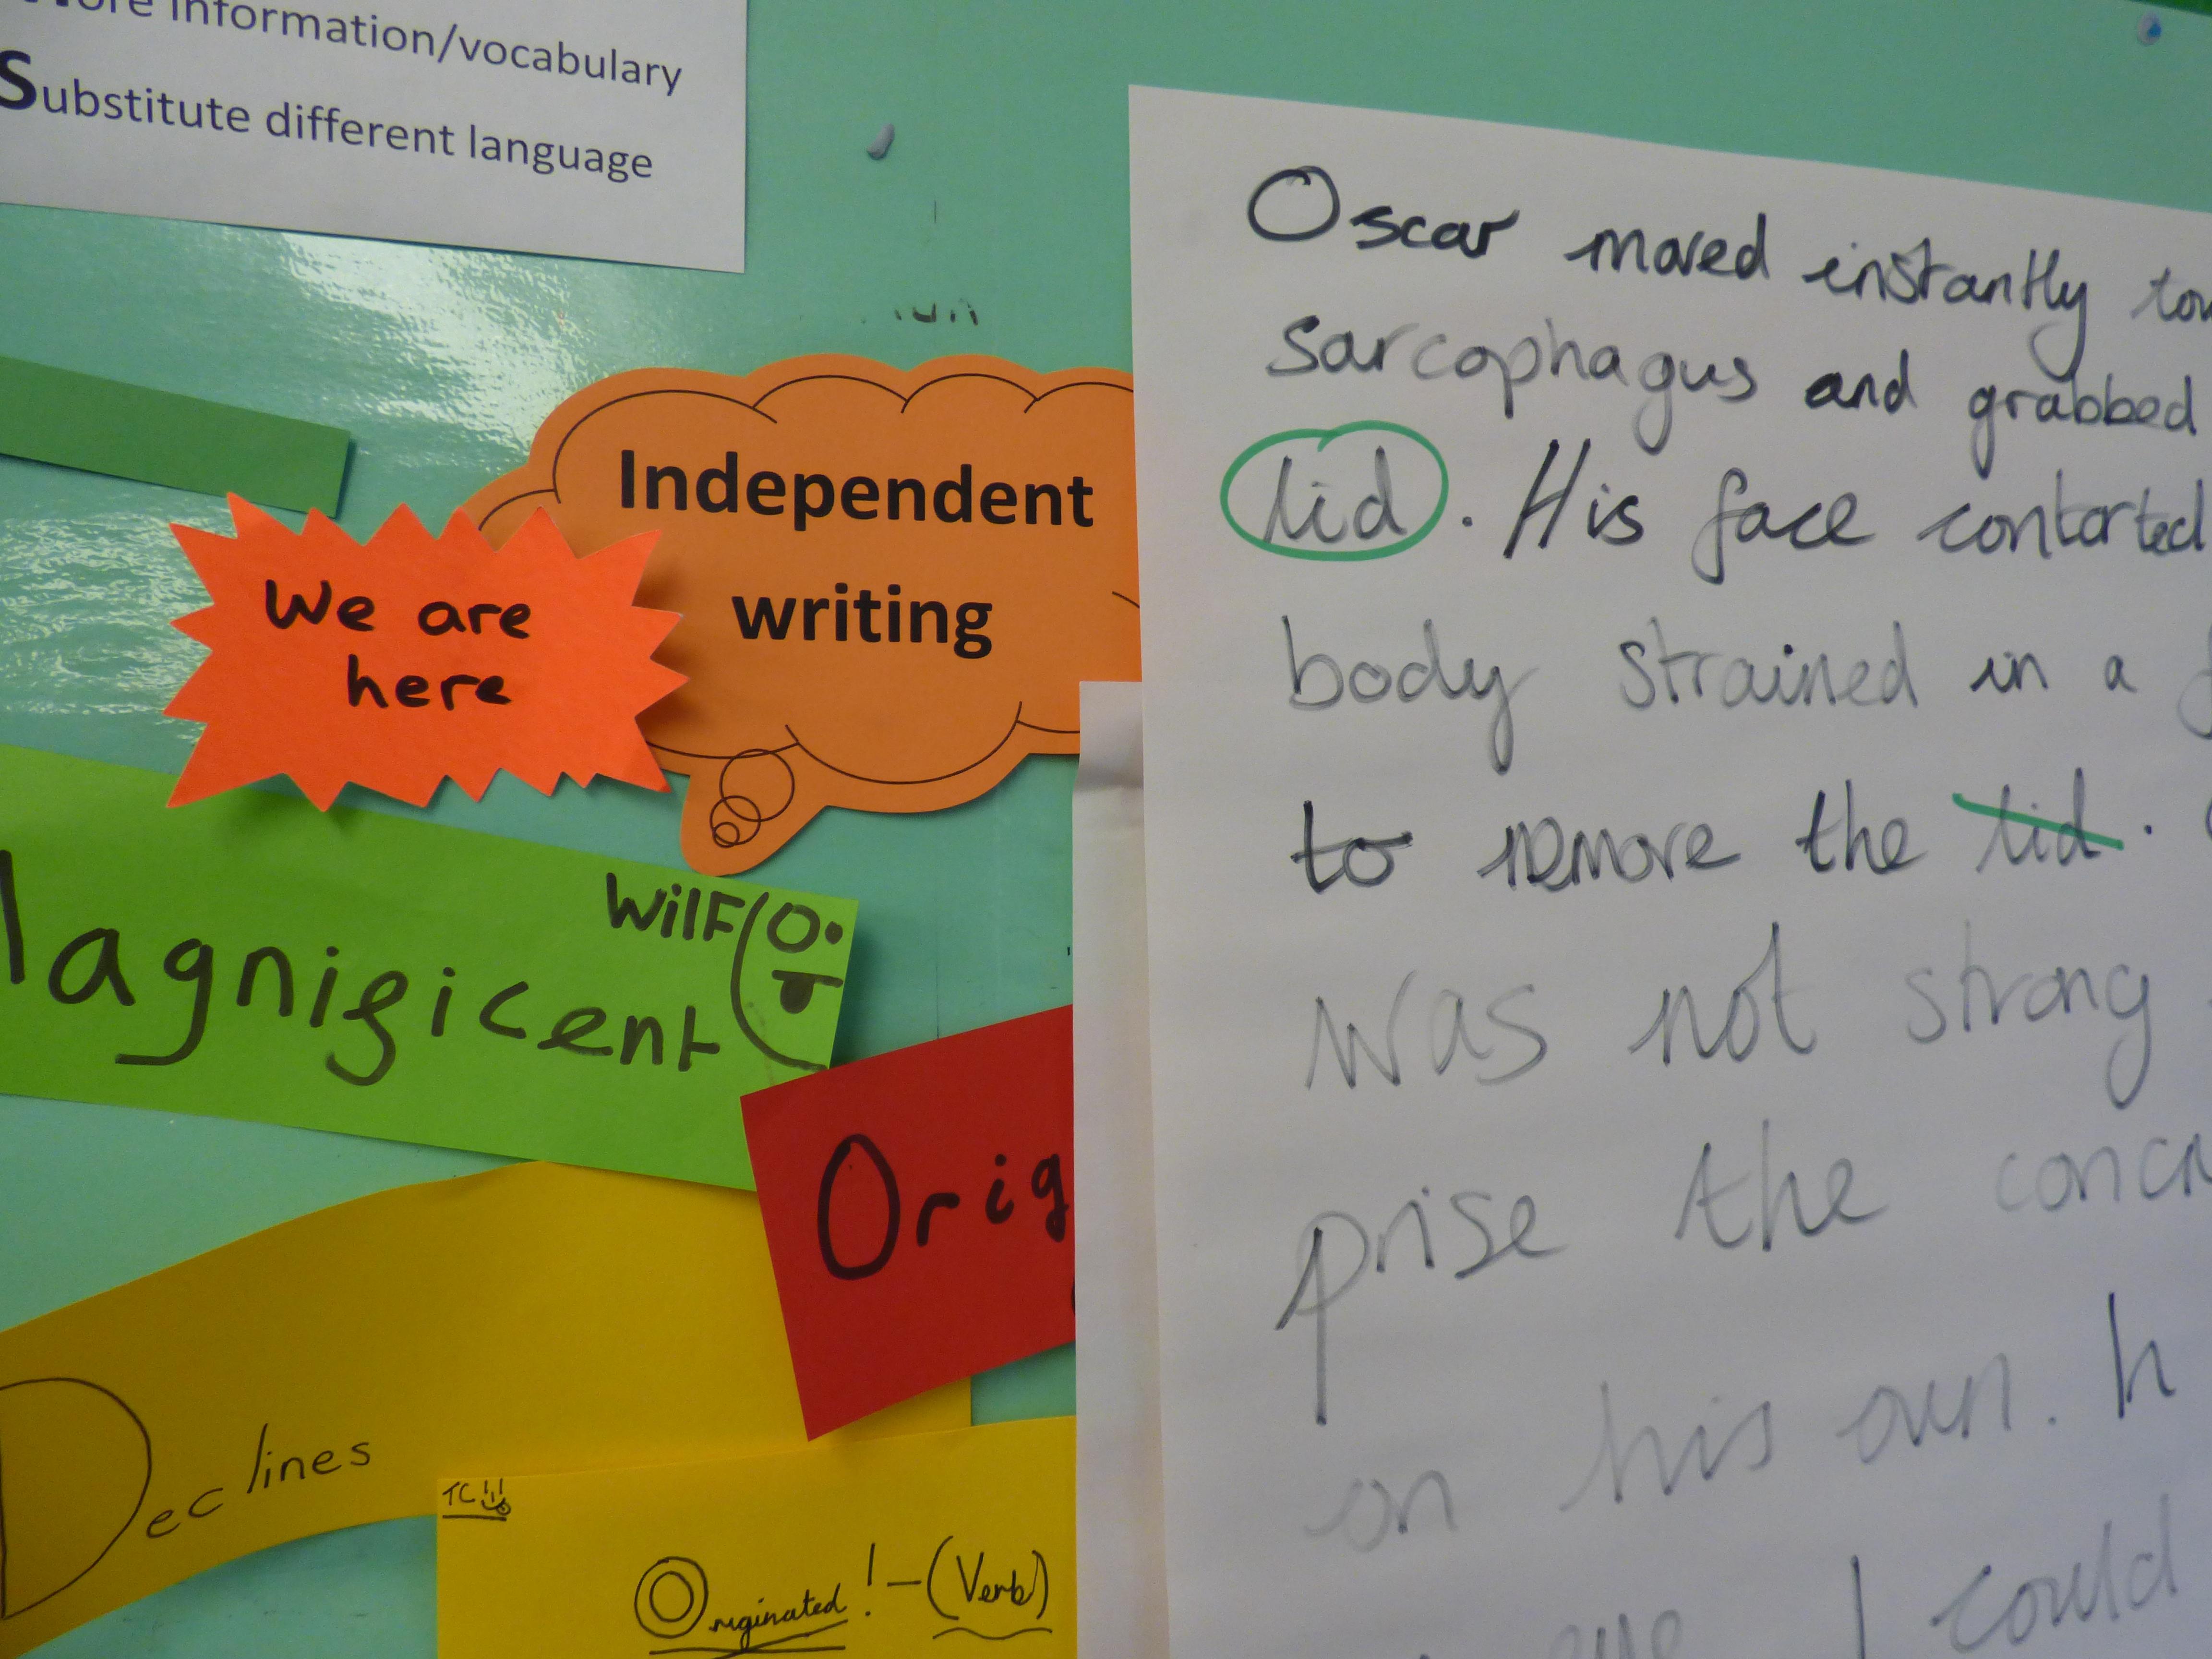 information/vocabulary
Substitute different language
Independent
writing
We are
here
Wilf
Declines
TC
Originated! - (Verb)
Oscar moved instantly
sarcophagus and grabbed
lid. His face contorted
body strained in a
to remove the lid.
was not strong
prise the
on his own.
I could